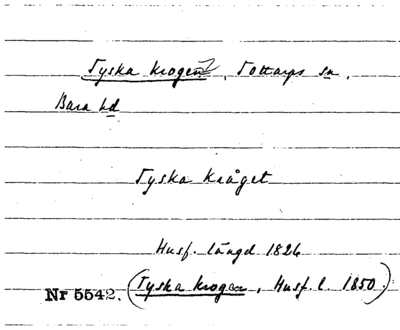 Tyska krogen, Tottarps sn,
Bara hd
Tyska Kråget
Husf. längd 1826
Nr 5542. (Tyska krogen, Husf. l. 1850)